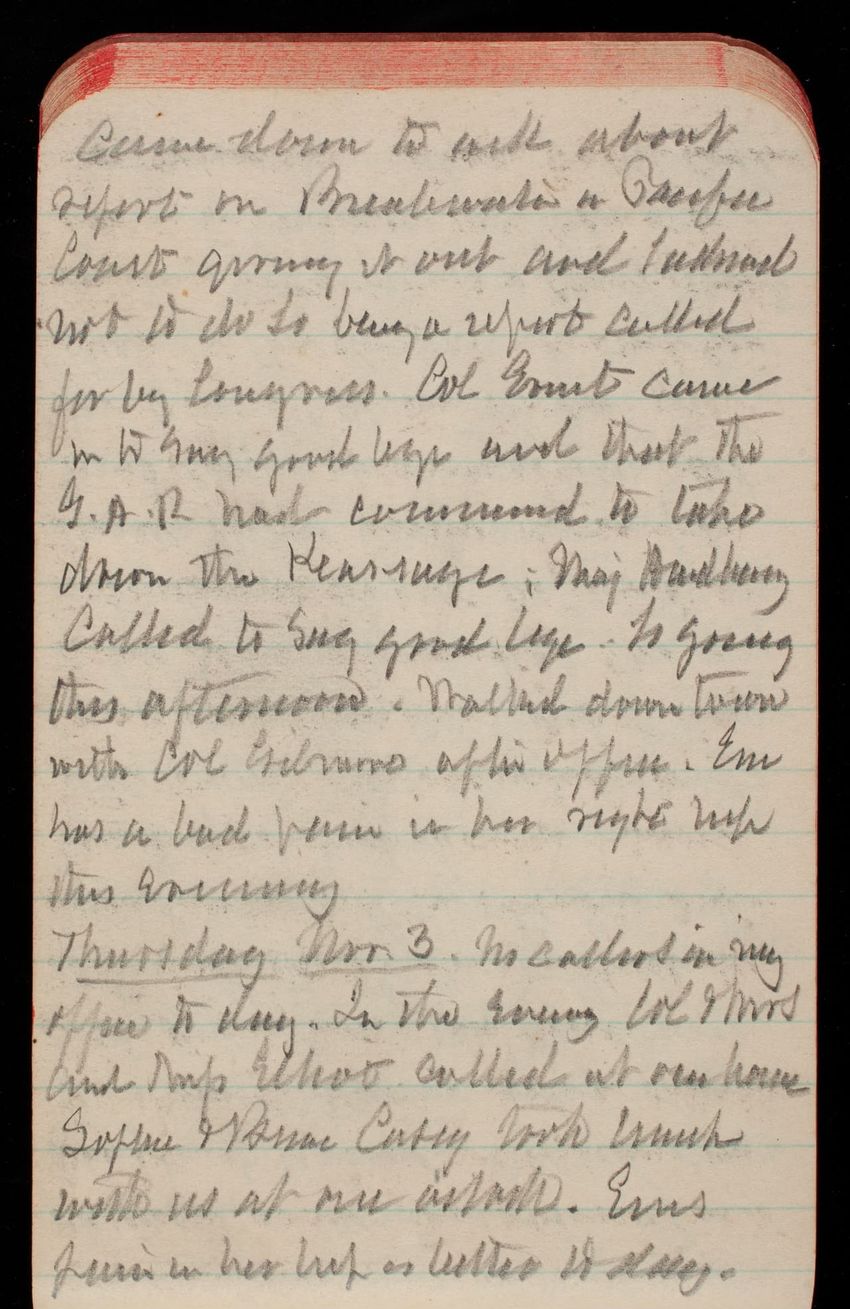 came down to ask about
report on Breakwater on Pacific
Coast giving it out and I advised
not to do so being a report called
for by Congress. Col Ernst came
in to say good bye and that the
G.A.R had commenced to take
down the Kearsarge; Maj
Called to say good bye. Is going
this afternoon. Walked down town
with Col Gilmore after office. Em
has a bad pain in her right hip
this evening
Thursday Nov. 3. No callers in my
office to day. In the evening Col & Mrs
and Miss Elliot called at our house
Sophie & Bessie Casey took lunch
with us at one oclock. Ems
pain in her hip is better to day.